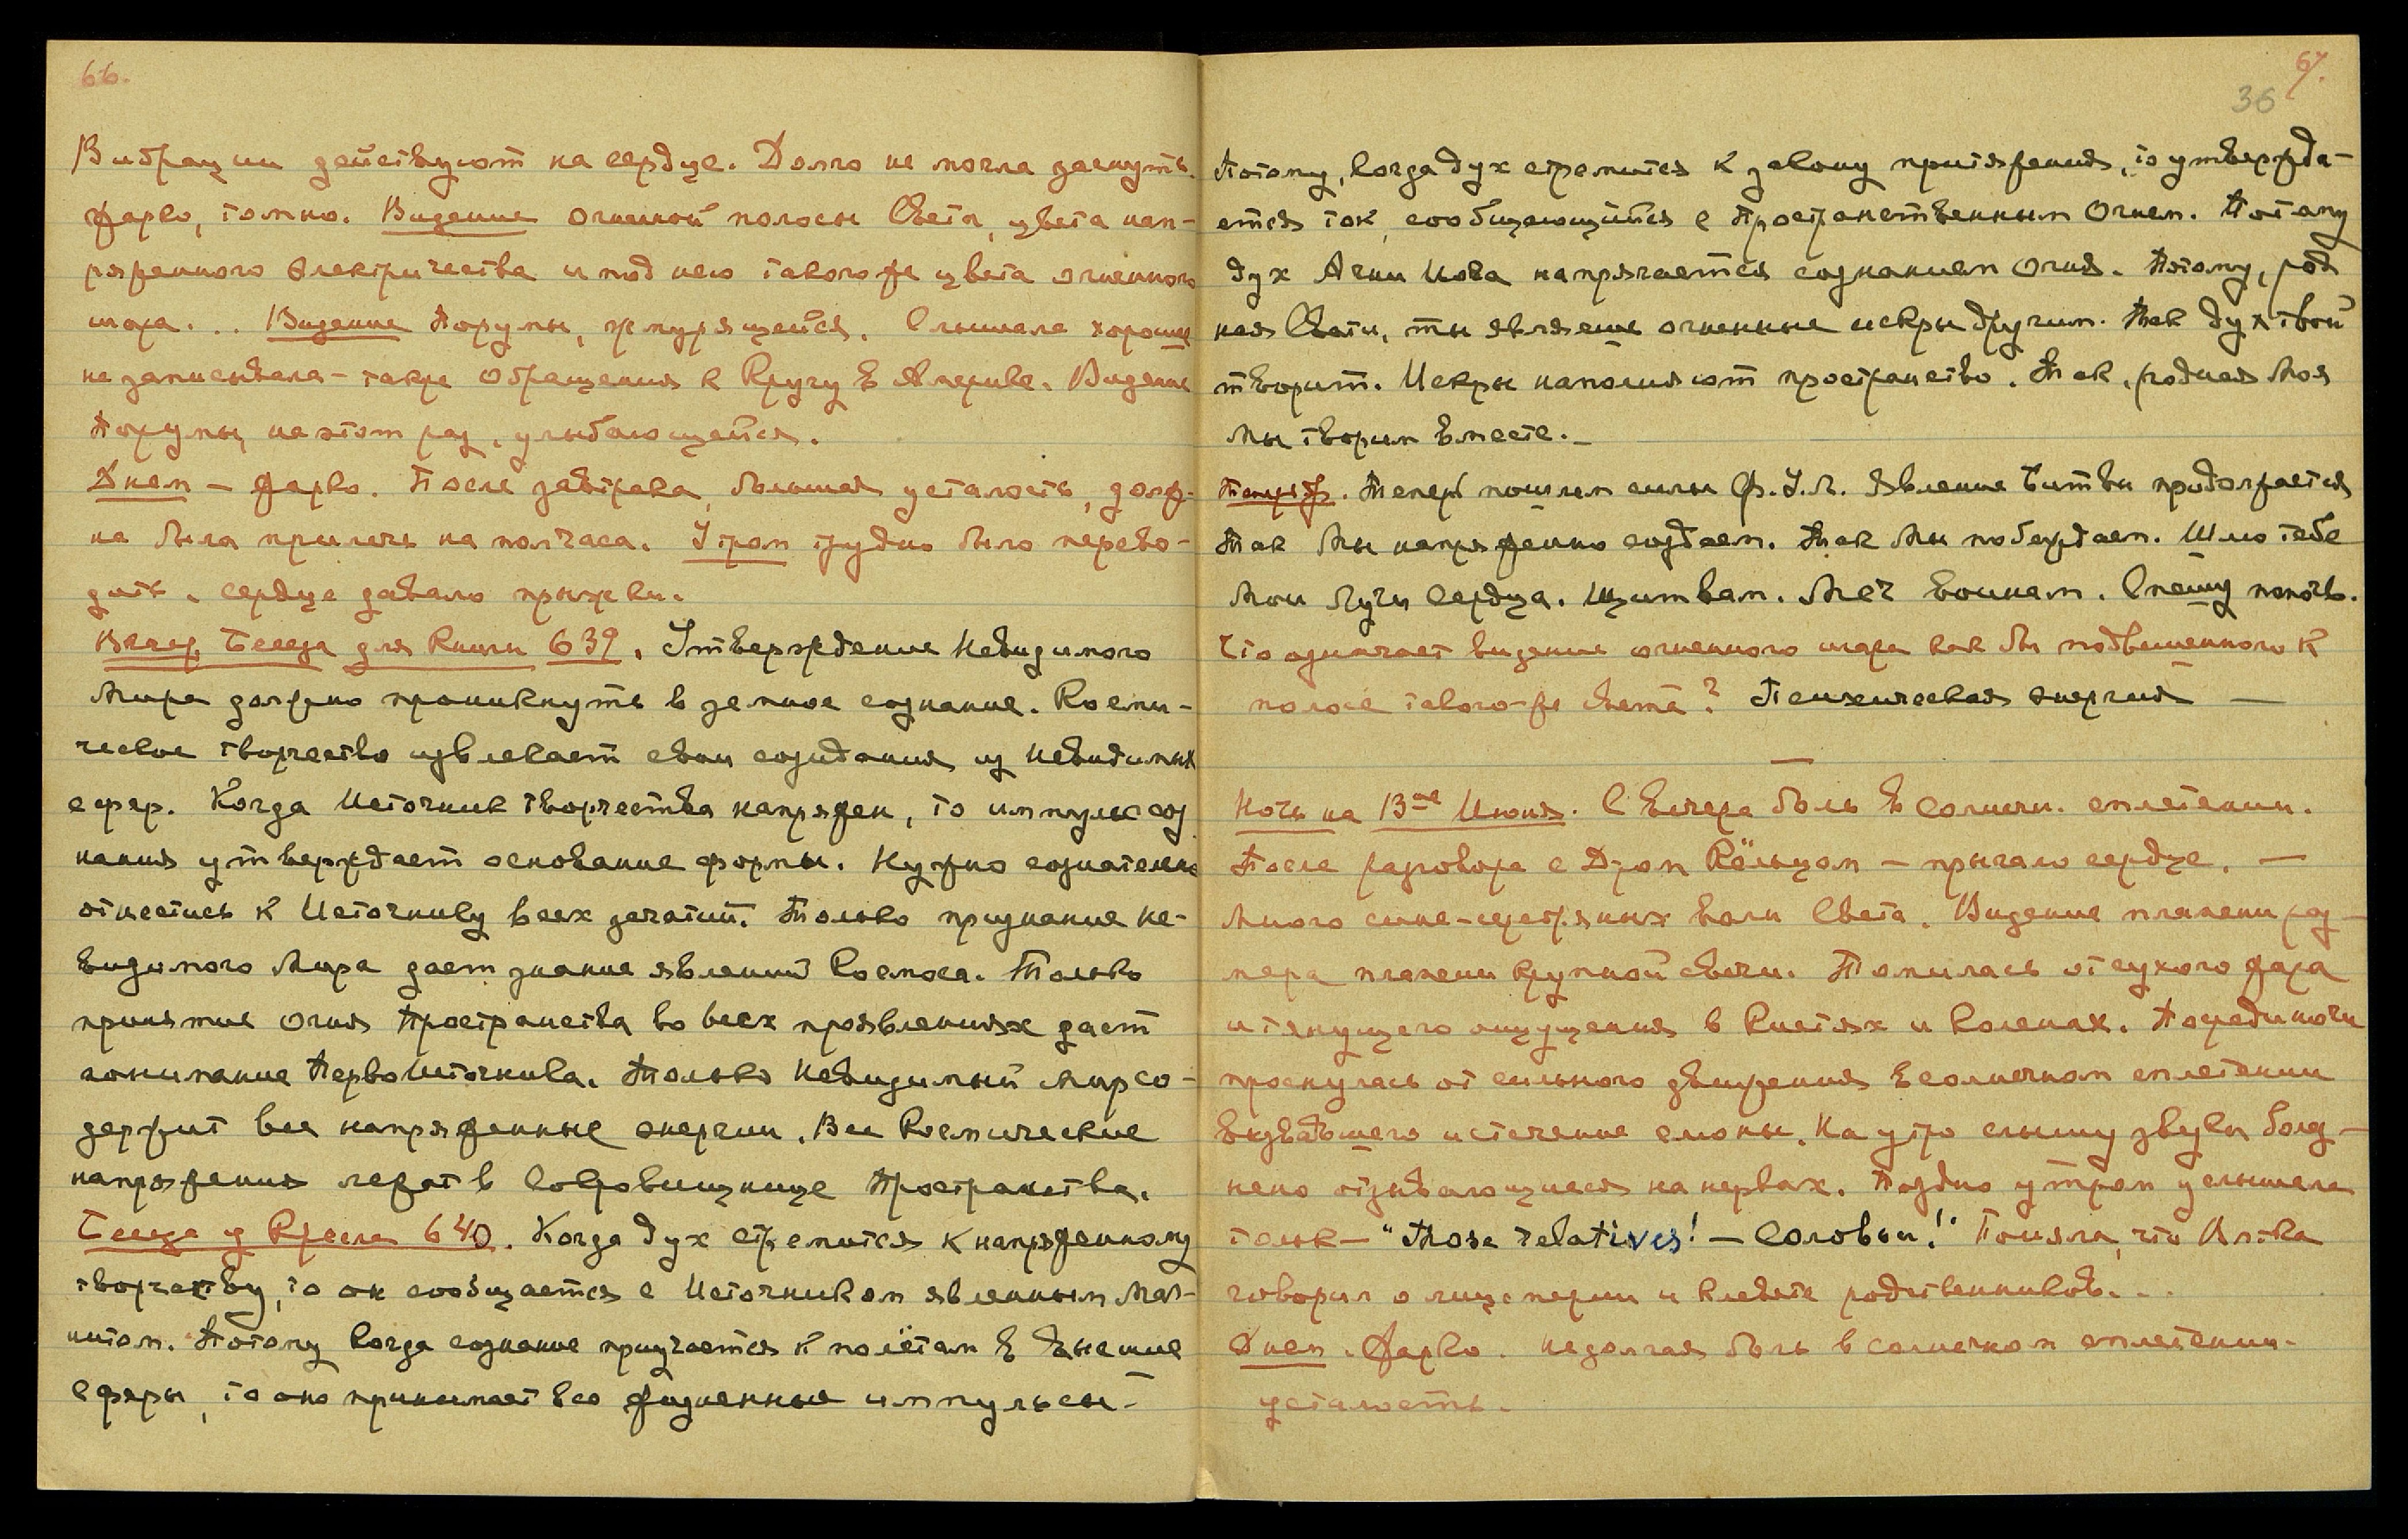 66.
Вибрации действуют на сердце. Долго не могла заснуть.
Жарко, томно. Видение огненной полосы Света, цвета нап-
ряженного электричества и под нею такого же цвета огненного
шара... Видение Порумы, жмурящейся. Слышала хорошие
не записывала – также обращения к Кругу в Америке. Видение
Порумы, на этот раз, улыбающейся.
Днем – жарко. После завтрака, большая усталость, долж-
на была прилечь на полчаса. Утром трудно было перево-
дить, сердце давало прыжки.
Вечер. Беседа для Книги 639. Утверждение Невидимого
Мира должно проникнуть в земное сознание. Косми-
ческое творчество извлекает свои созидания из невидимых
сфер. Когда Источник творчества напряжен, то импульс соз
нания утверждает основание формы. Нужно сознательно
отнестись к Источнику всех зачатий. Только признание Не-
видимого Мира дает знание явлений Космоса. Только
принятие Огня Пространства во всех проявлениях дает
понимание ПервоИсточника. Только Невидимый Мир со-
держит все напряженные энергии. Все Космические
напряжения лежат в Сокровищнице Пространства.
Беседа у Кресла 640. Когда дух стремится к напряженному
творчеству, то он сообщается с Источником явленным Маг-
нитом. Потому когда сознание приучается к полётам в Высшие
Сферы, то оно принимает все жизненные импульсы.
67.
36
Потому, когда дух стремится к закону притяжения, то утвержда-
ется ток, сообщающийся с Пространственным Огнем. Потому
дух Агни Йога напрягается сознанием Огня. Потому, род
ная Свати, ты являешь огненные искры другим. Так дух твой
творит. Искры наполняют пространство. Так, родная Моя
Мы творим вместе. –
Теперь пошлем силы Ф.У.Л. Явление Битвы продолжается
Так Мы напряженно создаем. Так Мы побеждаем. Шлю тебе
Мои Лучи Сердца. Щит вам. Меч воинам. Спешу помочь.
Что означает видение огненного шара как бы подвешенного к
полосе такого-же света? Психическая энергия —
—
Ночь на 13ое Июня. С вечера боль в солнечн. сплетении.
После разговора с Д-ром Кёльцом – прыгало сердце. —
Много сине-серебряных волн Света. Видение пламени раз –
мера пламени крупной свечи. Томилась от сухого жара
и тянущего ощущения в кистях и коленах. Посреди ночи
проснулась от сильного движения в солнечном сплетении
вызвавшего истечение слюны. На утро слышу звуки болез –
ненно отзывающиеся на нервах. Поздно утром услышала
голос – "Those relatives! – Соловьи!" Поняла, что Влтка
говорил о лицемерии и клевете родственников...
Днем. Жарко. Недолгая боль в солнечном сплетении.
усталость.